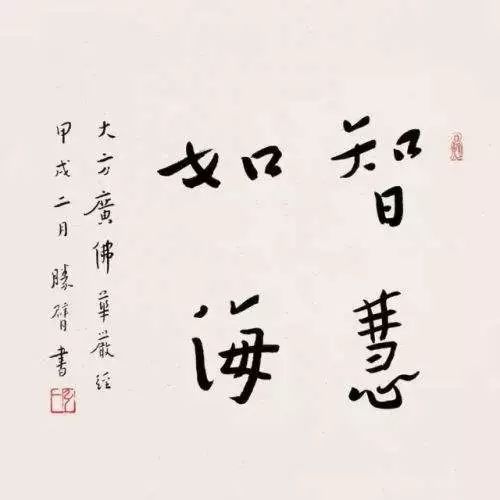 智慧
如海
大方廣佛華嚴經
甲戌二月勝臂書